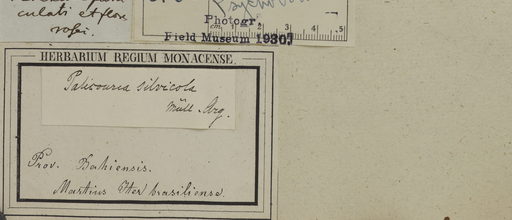 culati et flore
rosei.
Psychotria
Photogr.
cm. 1 2 3 4 5
Field Museum
HERBARIUM REGIUM MONACENSE.
Palicourea silvicola
Müll. Arg.
Prov. Bahiensis.
Martius Iter brasiliense.